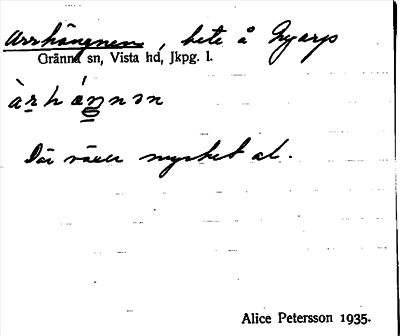 Arrhängnen, bete å Nyarp
Gränna sn, Vista hd, Jkpg. l.
Där växer mycket al.
Alice Petersson 1935.